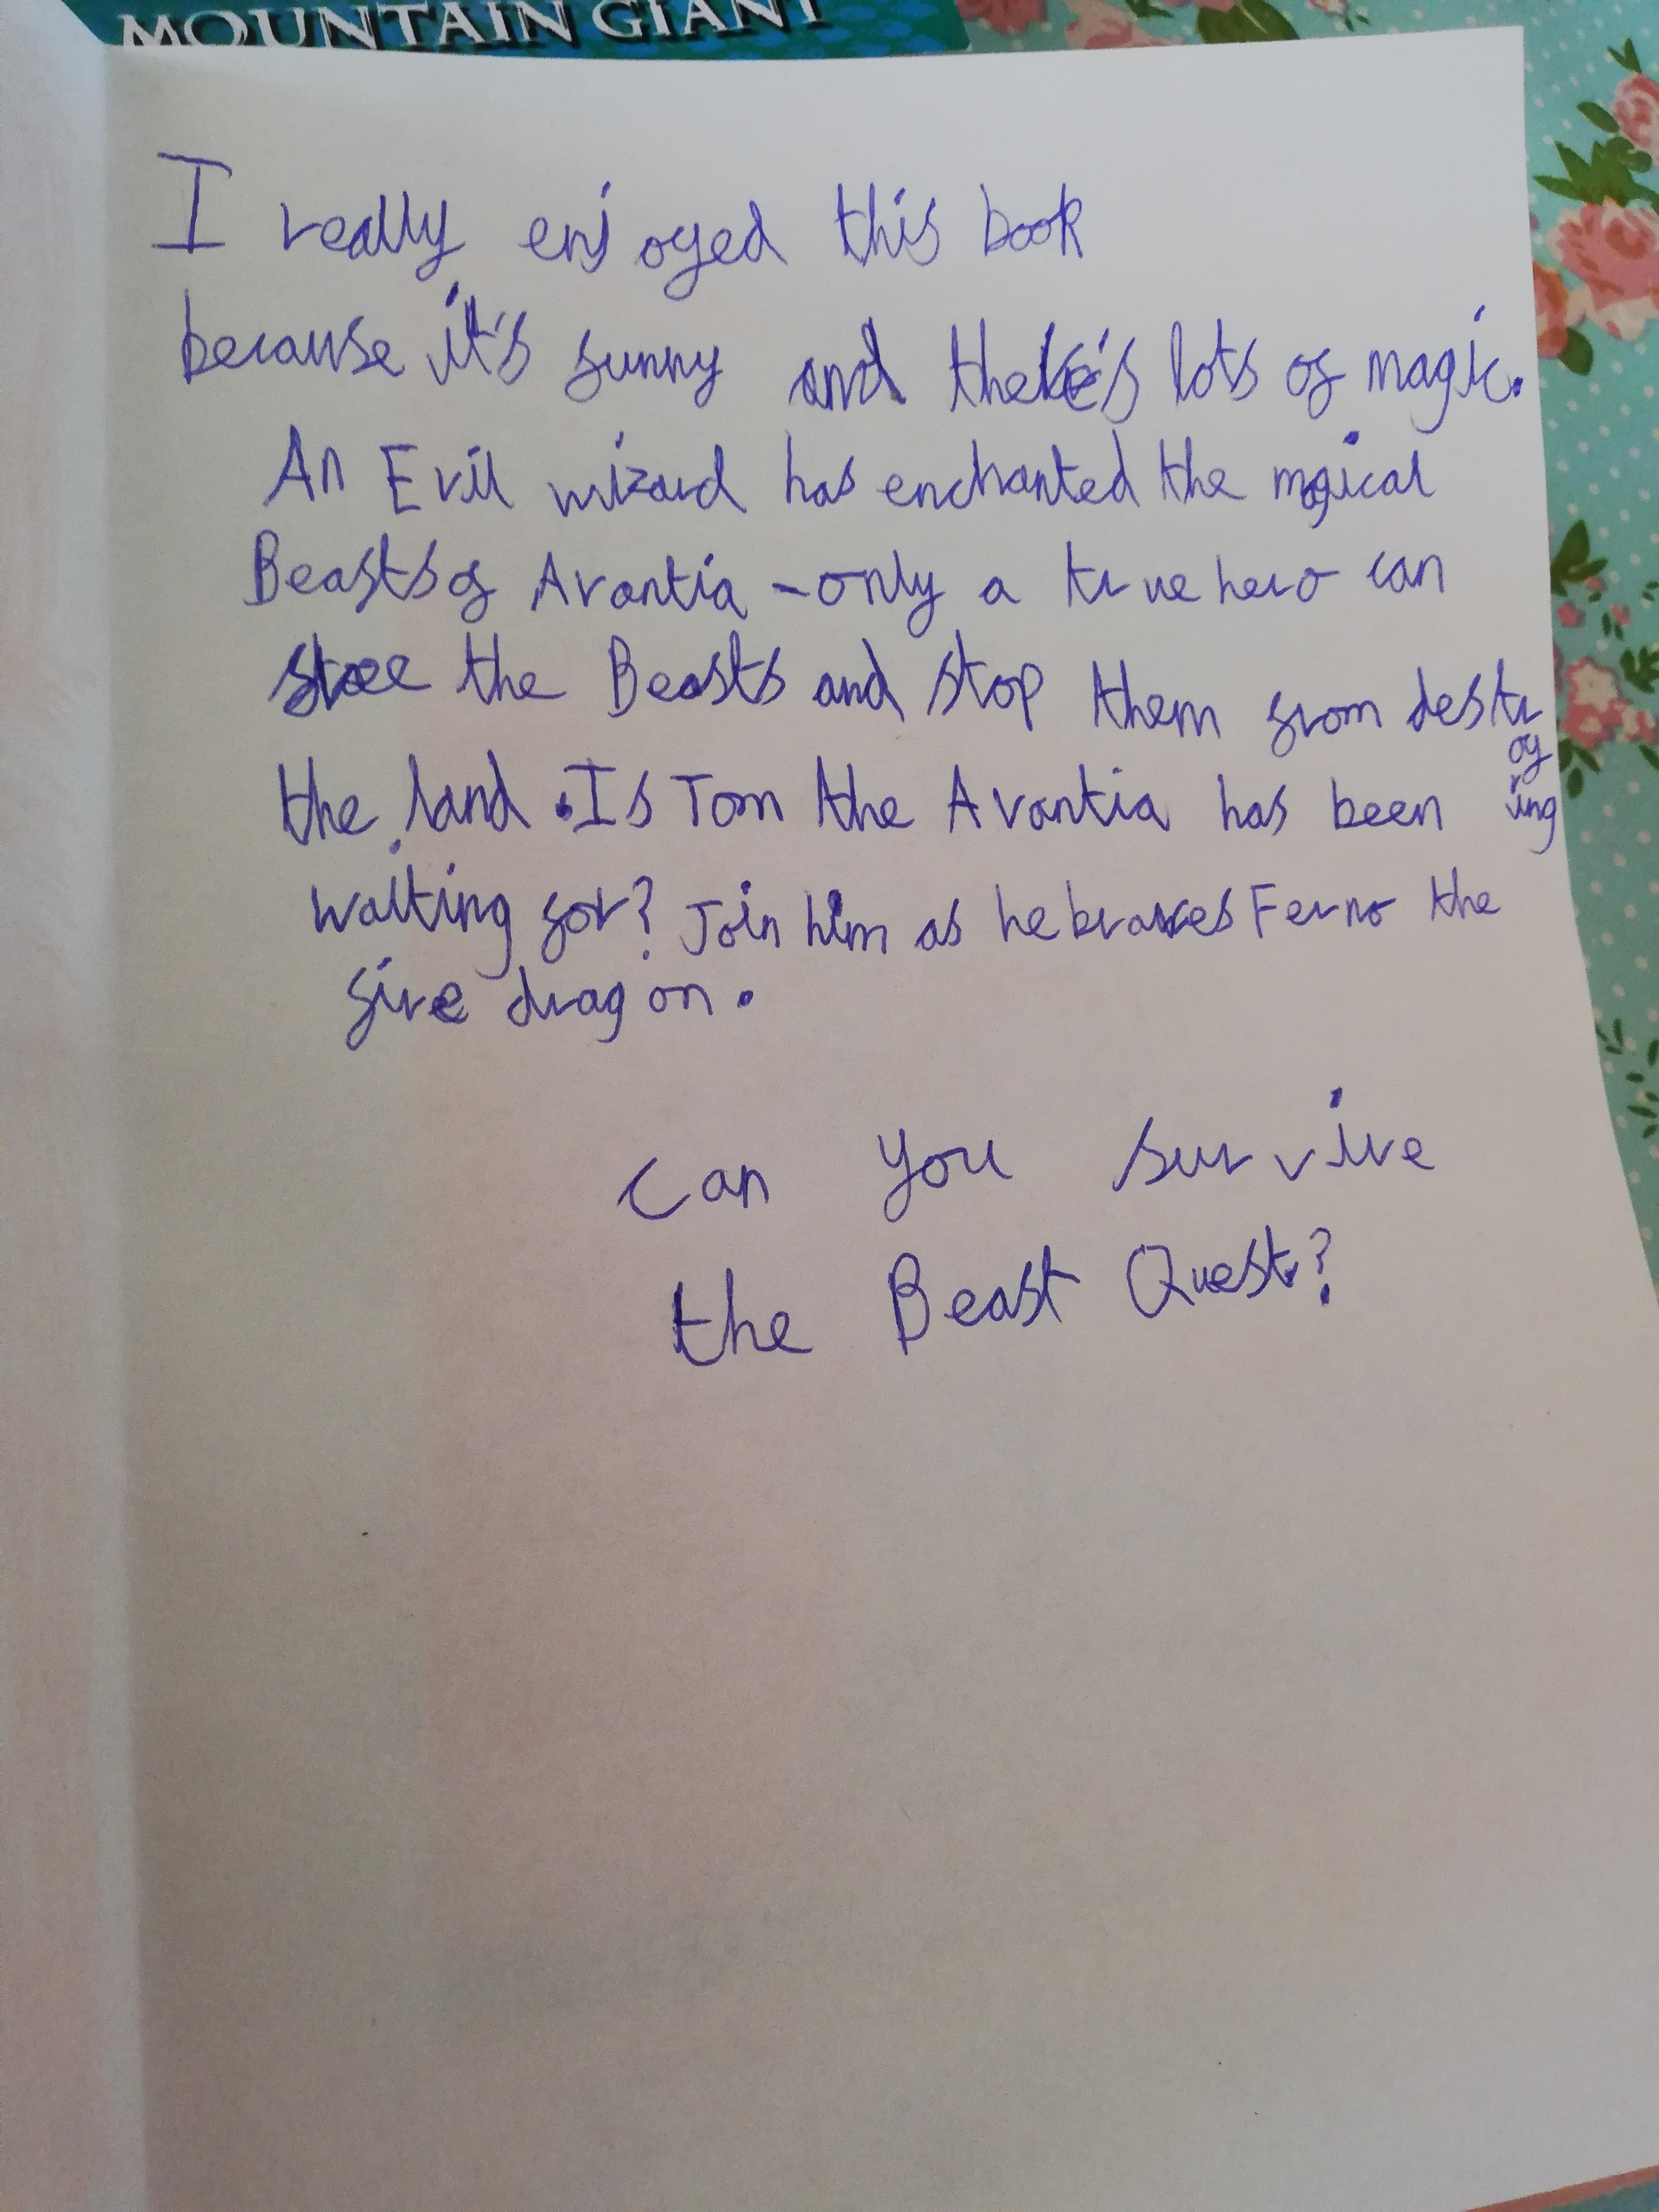 MOUNTAIN GIANT
I really enjoyed this book
because it's funny and there's lots of magic.
An Evil wizard has enchanted the magical
Beasts of Avantia - only a true hero can
free the Beasts and stop them from destr
oy
ing
the land. Is Tom the Avantia has been
waiting for? Join him as he braves Ferno the
fire dragon.
Can you survive
the Beast Quest?